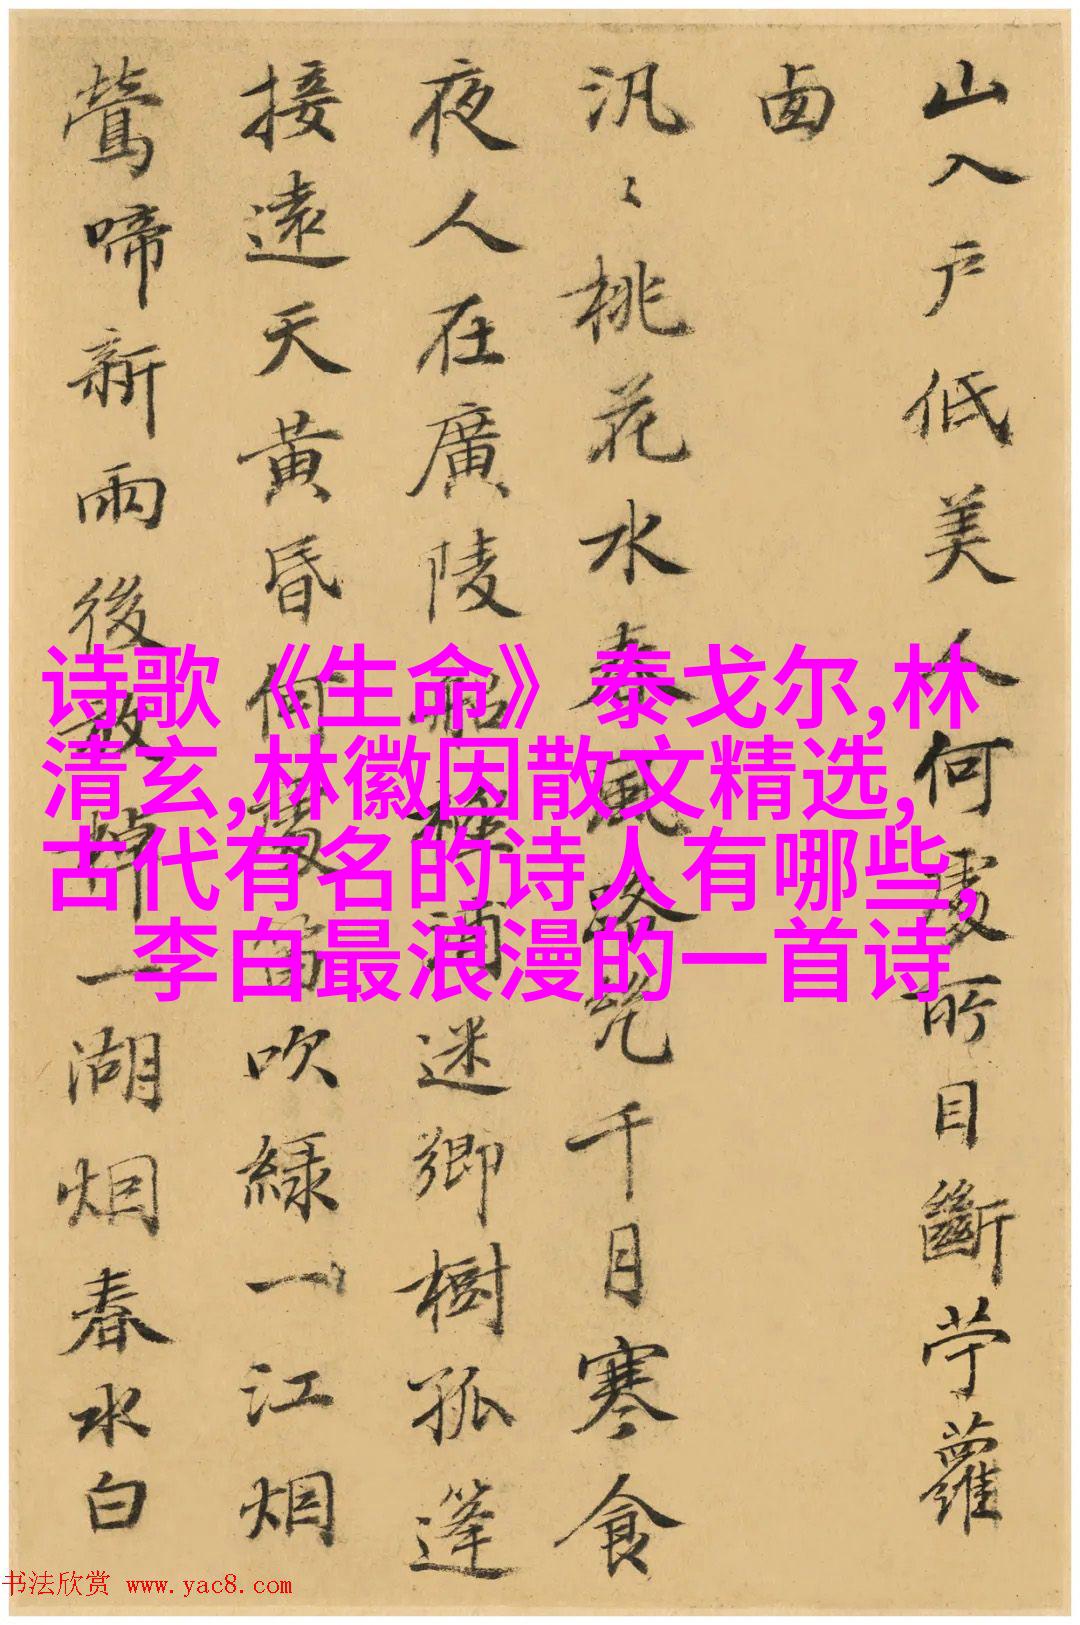 山入戶低美人何處所目斷苧蘿
卥
汎〻桃花水春風路千月寒食
夜人在廣陵船極浦迷鄉樹孤篷
接遠天黃昏何處笛吹綠一江烟
鶯啼新雨後放棹一湖烟春水白
诗歌《生命》 泰戈尔,林
清玄,林徽因散文精选,
古代有名的诗人有哪些,
李白最浪漫的一首诗
书法欣赏 www.yac8.com